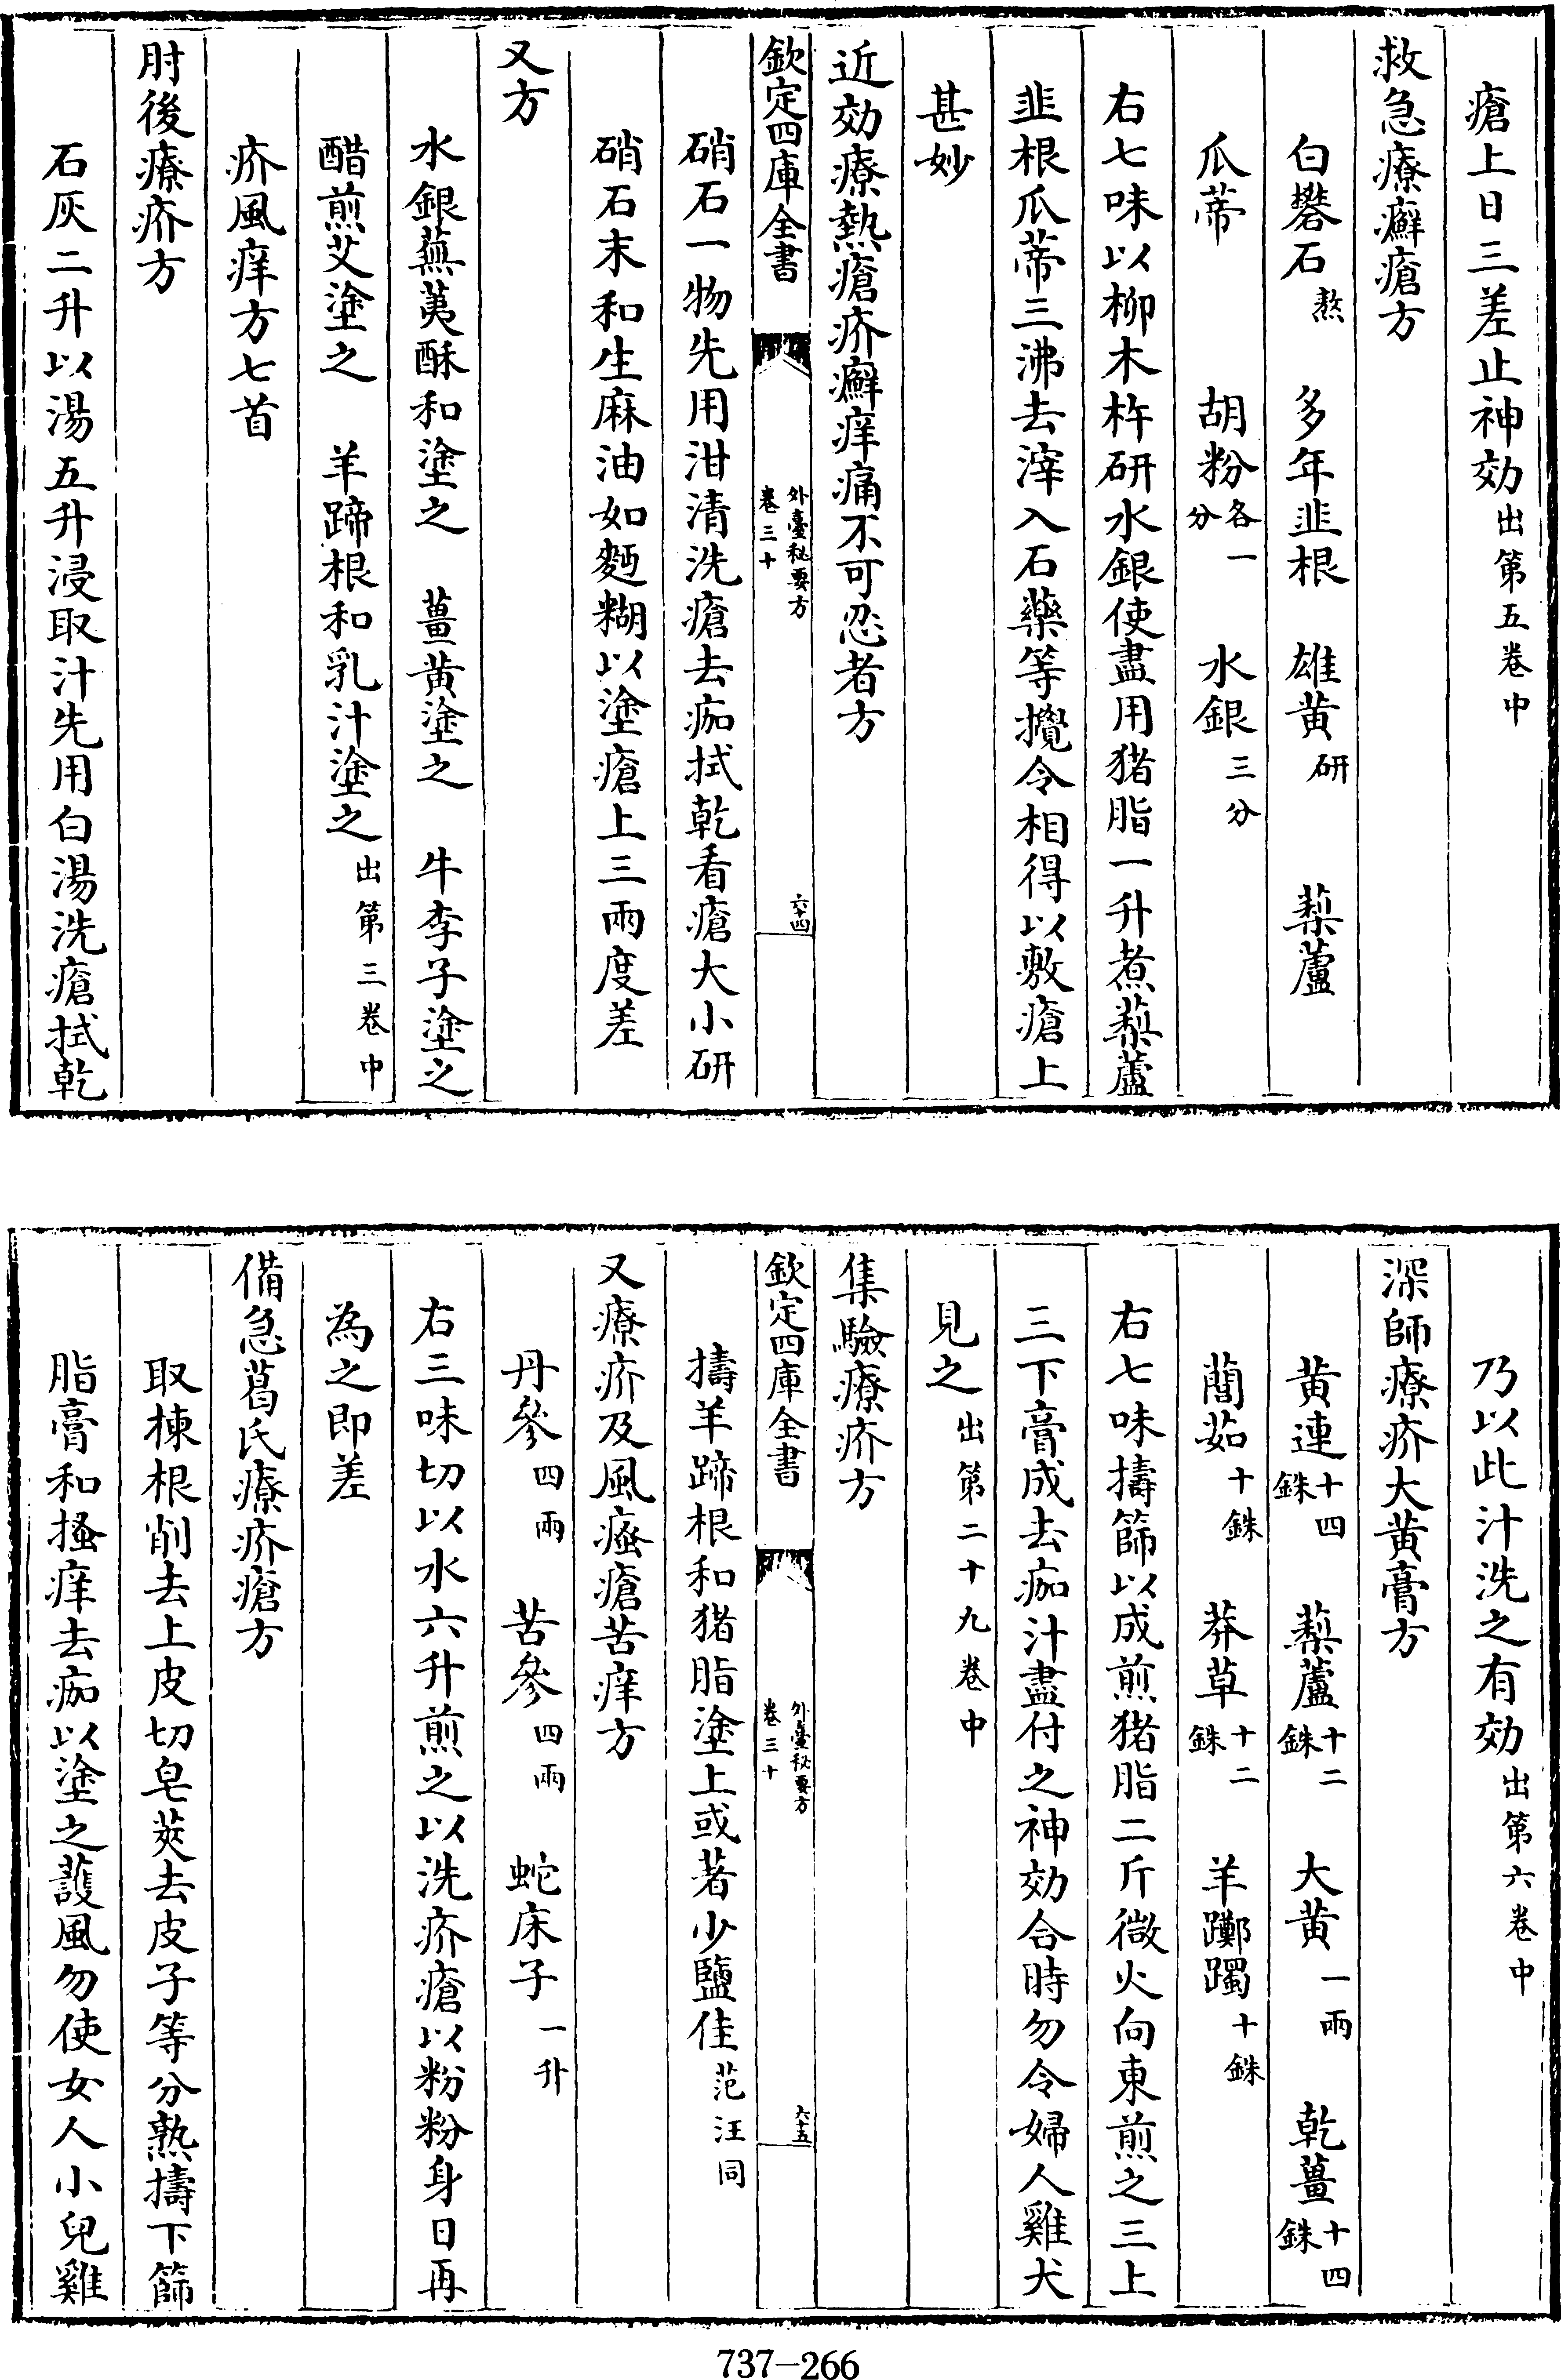 瘡上日三差止神効出第五卷中
救急療癬瘡方
白礬石熬　多年韭根　雄黄研　藜蘆
瓜蒂　胡粉各一分　水銀三分
右七味以柳木杵研水銀使盡用猪脂一升煮藜蘆
韭根瓜蒂三沸去滓入石藥等攪令相得以敷瘡上
甚妙
近効療熱瘡疥癬痒痛不可忍者方
欽定四庫全書　外臺秘要方卷三十　六十四
硝石一物先用泔清洗瘡去痂拭乾看瘡大小研
硝石末和生麻油如麫糊以塗瘡上三兩度差
又方
水銀蕪荑酥和塗之　薑黄塗之　牛李子塗之
醋煎艾塗之　羊蹄根和乳汁塗之出第三卷中
疥風痒方七首
肘後療疥方
石灰二升以湯五升浸取汁先用白湯洗瘡拭乾
乃以此汁洗之有効出第六卷中
深師療疥大黄膏方
黄連十四銖　藜蘆十二銖　大黄一兩　乾薑十四銖
䕡茹十銖　莽草十二銖　羊躑躅十銖
右七味擣篩以成煎猪脂二斤微火向東煎之三上
三下膏成去痂汁盡付之神効合時勿令婦人雞犬
見之出第二十九卷中
集驗療疥方
欽定四庫全書　外臺秘要方卷三十　六十五
擣羊蹄根和猪脂塗上或著少鹽佳范汪同
又療疥及風瘙瘡苦痒方
丹參四兩　苦參四兩　蛇床子一升
右三味切以水六升煎之以洗疥瘡以粉粉身日再
為之即差
備急葛氏療疥瘡方
取楝根削去上皮切皂莢去皮子等分熟擣下篩
脂膏和搔痒去痂以塗之護風勿使女人小兒雞
737-266